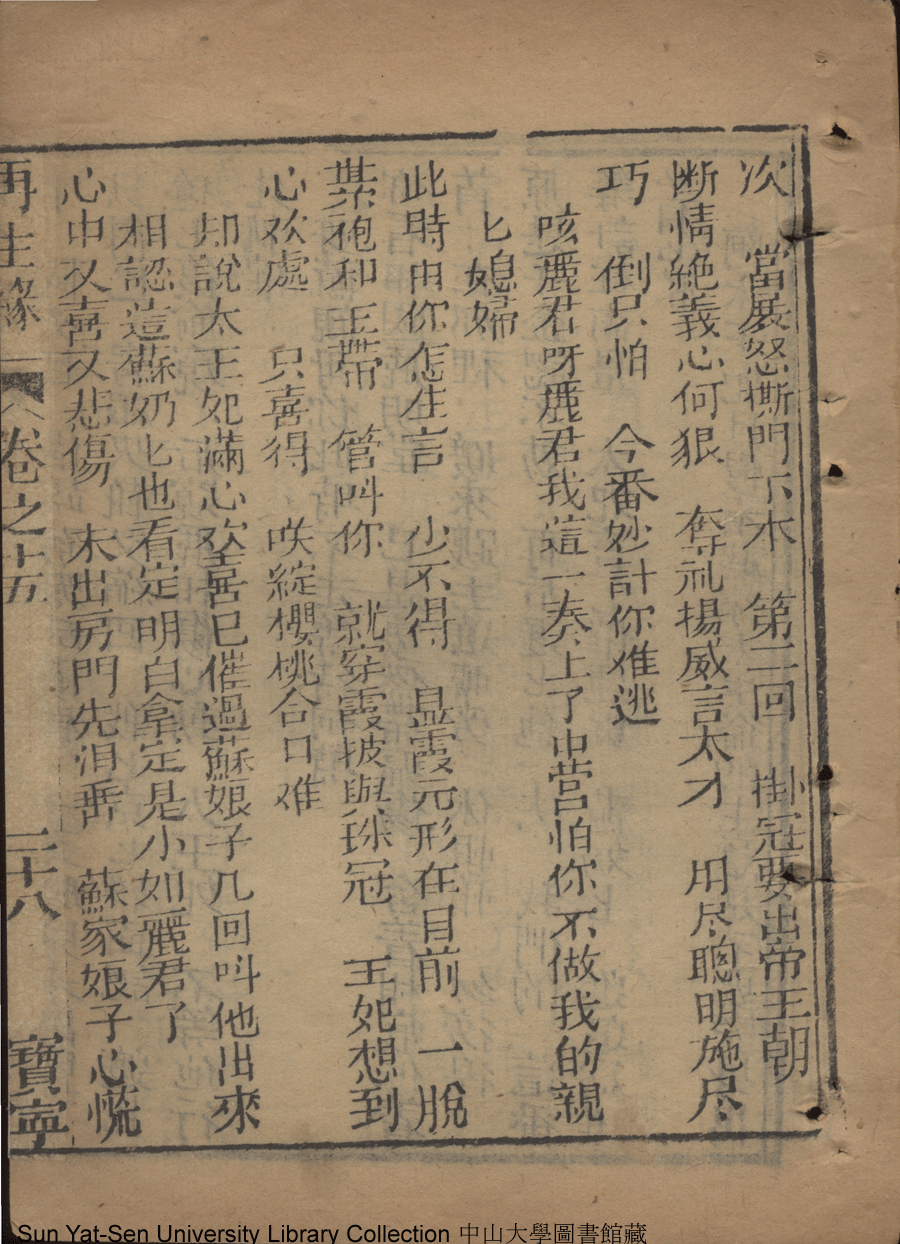 次　當展怒撕門下本　第二回　掛冠要出帝王朝
断情絶義心何狠　奪礼揚威言太才　用尽聰明施尽
巧　倒只怕　今番妙計你难逃
咳麗君呀麗君我這一奏上了中営怕你不做我的親
匕媳婦
此時由你怎生言　少不得　显霞元形在目前　一脫
業袍和王帶　管叫你　就穿霞披與珠冠　王妃想到
心欢處　只喜得　咲綻櫻桃合口难
却說太王妃滿心欢喜已催過蘇娘子几回叫他出來
相認這蘇奶匕也看定明白拿定是小如麗君了
心中又喜又悲傷　未出房門先泪垂　蘇家娘子心慌
再生緣　卷之十五　二十八　寶寧
Sun Yat-Sen University Library Collection 中山大學圖書館藏